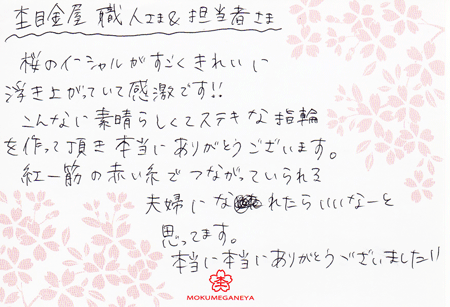 杢目金屋 職人さま & 担当者さま
桜のイニシャルがすごくきれいに
浮き上がっていて感激です!!
こんなに素晴らしくてステキな指輪
を作って頂き本当にありがとうございます。
紅一筋の赤い糸でつながっていられる
夫婦になれたらいいなーと
思ってます。
本当に本当にありがとうございました!!
MOKUMEGANEYA